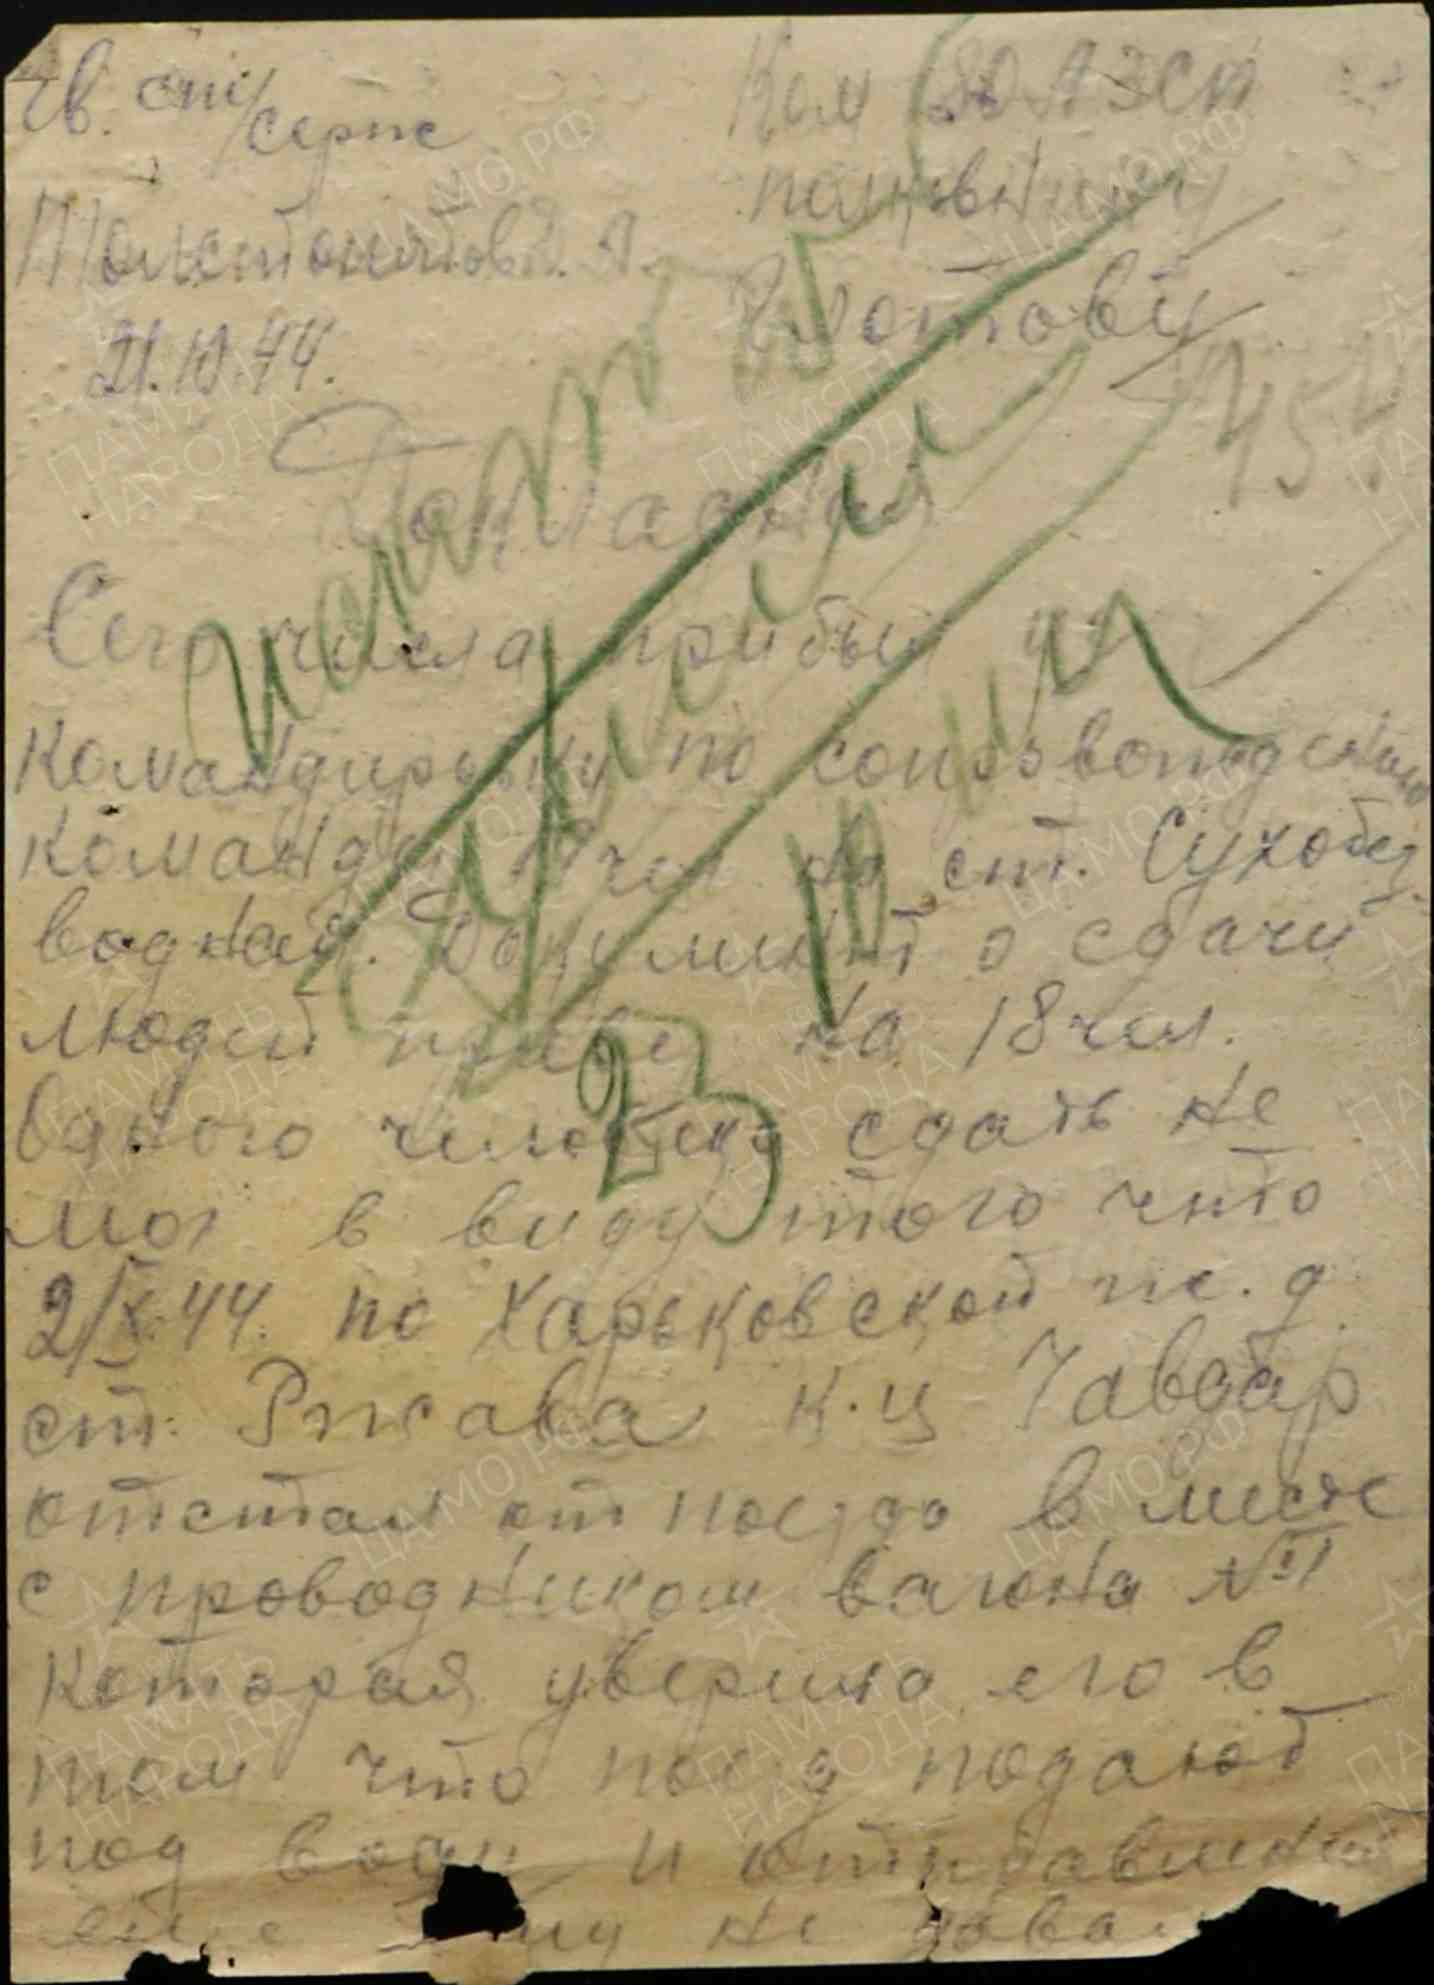 Гв. ст/сержс
Толстопятов Д. А.
21.10.44.
Ком АЗСП
полковнику
Глотову
454
Докладная
Сего числа прибыл из
командировки по сопровождению
команды 19 чел на ст. Сухобез
водная. Документ о сдачи
людей привез на 18 чел.
Одного человека сдать не
мог в виду того что
2/X.44. по Харьковской ж. д
ст. Ржава к-ц Чавдар
отстал от поезда в месте
с проводником вагона № 11
которая уверила его в
том что поезд подают
под воду и отправления
еще ему не давали
23
ПАМЯТЬ НАРОДА
ЦАМО РФ